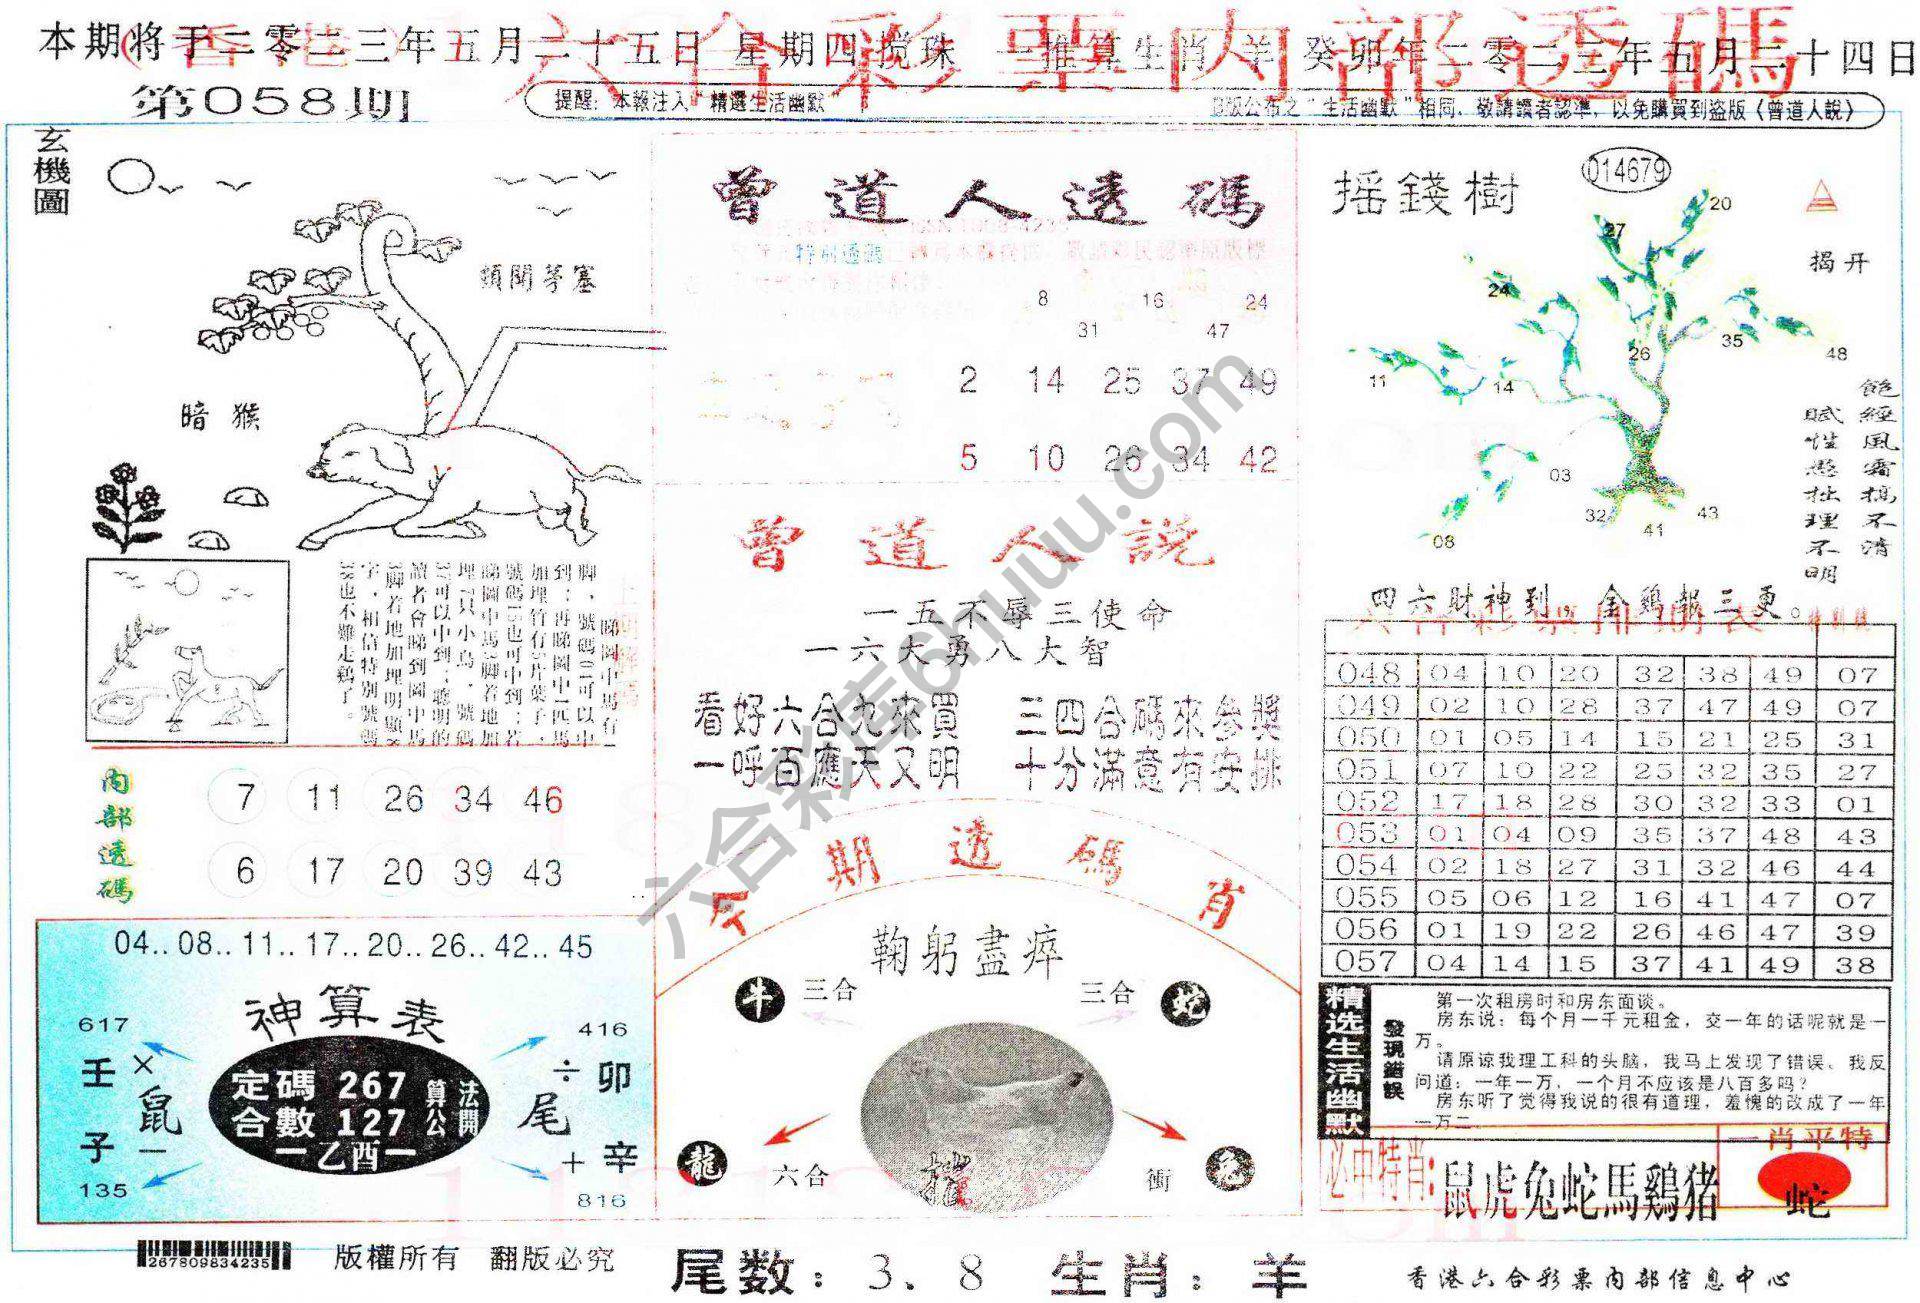 本期将于二零二三年五月二十五日 星期四搅珠 推算生肖 羊 癸卯年二零二三年五月二十四日
(香港)六合彩票内部透碼
第058期
提醒：本報注入“精選生活幽默”
B版公布之“生活幽默”相同，敬請讀者認準，以免購買到盜版《曾道人說》
玄機圖
頭開茅塞
暗猴
睇圖中馬有1
脚，號碼01可以中
到；再睇圖中一匹馬
加埋竹有5片葉子，
號碼15也可中到；若
睇圖中馬3脚着地加
埋7只小鳥，號碼
37可以中到；聰明的
讀者會睇到圖中馬
3脚着地加埋明顯8
字，相信特別號碼
38也不難走鷄了。
内部透碼
7 11 26 34 46
6 17 20 39 43
04..08..11..17..20..26..42..45
神算表
617
416
壬
×
鼠
一
子
135
定碼 267
合數 127
算公
法開
一乙酉一
÷
卯
尾
+
辛
816
曾道人透碼
特别透碼
8 16 24
31 47
2 14 25 37 49
5 10 26 34 42
曾道人説
一五不辱三使命
一六大勇八大智
看好六合九來買 三四合碼來參獎
一呼百應天又明 十分滿意有安排
今期透碼肖
鞠躬盡瘁
牛 三合
三合 蛇
龍 六合
衝 兔
摇錢樹
014679
揭开
20
27
24
26
35
48
11
14
03
32
41
43
08
飽經風霜搞不清
賦性愚拙理不明
四六財神到，金鷄報三更。
048 04 10 20 32 38 49 07
049 02 10 28 37 47 49 07
050 01 05 14 15 21 25 31
051 07 10 22 25 32 35 27
052 17 18 28 30 32 33 01
053 01 04 09 35 37 48 43
054 02 18 27 31 32 46 44
055 05 06 12 16 41 47 07
056 01 19 22 26 46 47 39
057 04 14 15 37 41 49 38
精选生活幽默
發現錯誤
第一次租房时和房东面谈。
房东说：每个月一千元租金，交一年的话呢就是一
万。
请原谅我理工科的头脑，我马上发现了错误、我反
问道：一年一万，一个月不应该是八百多吗？
房东听了觉得我说的很有道理，羞愧的改成了一年
一万二
必中特肖：鼠虎兔蛇馬鷄猪
一肖平特
蛇
267809834235
版權所有 翻版必究
尾数：3、8 生肖：羊
香港六合彩票内部信息中心
六合彩库6huuu.com